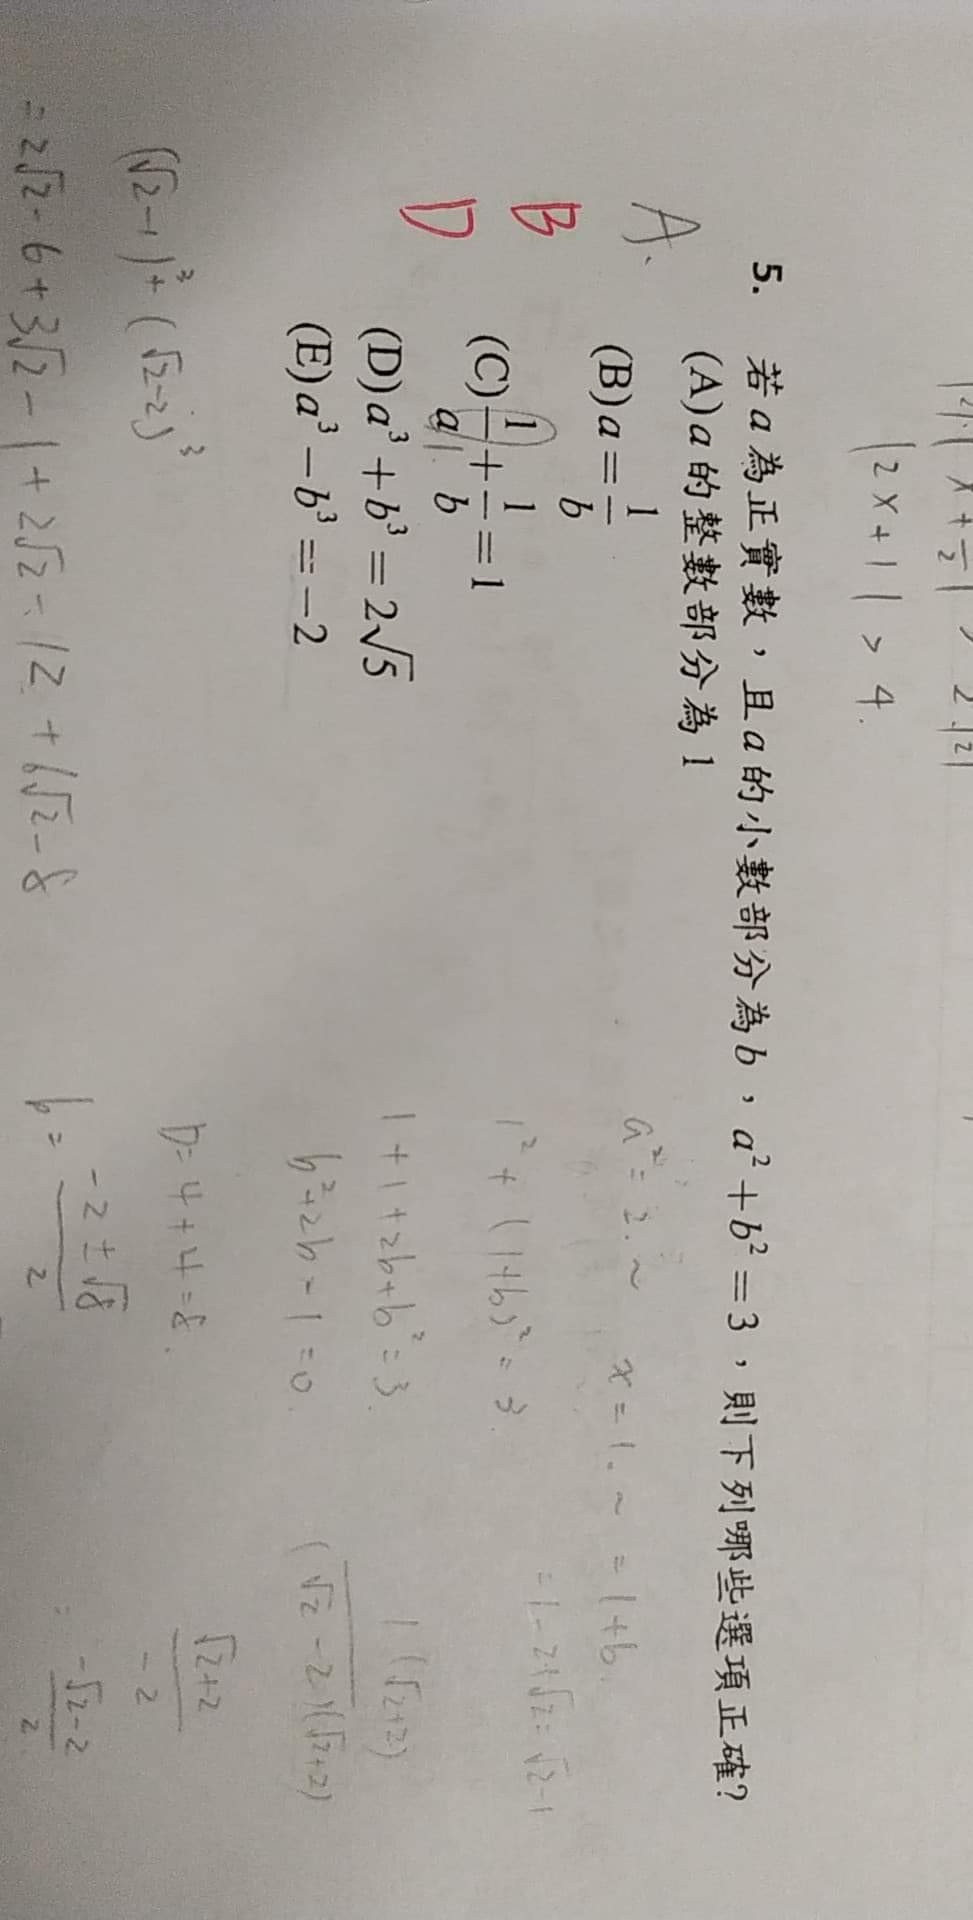 |2x+1| > 4.
5. 若a為正實數，且a的小數部分為b，a²+b²=3，則下列哪些選項正確?
A、
(A)a的整數部分為1
B
(B)a=1/b
(C)1/a+1/b=1
D
(D)a³+b³=2√5
(E)a³-b³=-2
x=1.~ =1+b.
1²+(1+b)²=3
=1-2+√2=√2-1
1+1+2b+b²=3.
b²+2b-1=0.
1(√2+2)
(√2-2)(√2+2)
D=4+4=8.
√2+2
-2
b=
-2±√8
2
-√2-2
2
(√2-1)³+(√2-2)³
=2√2-6+3√2-1+2√2-12+6√2-8